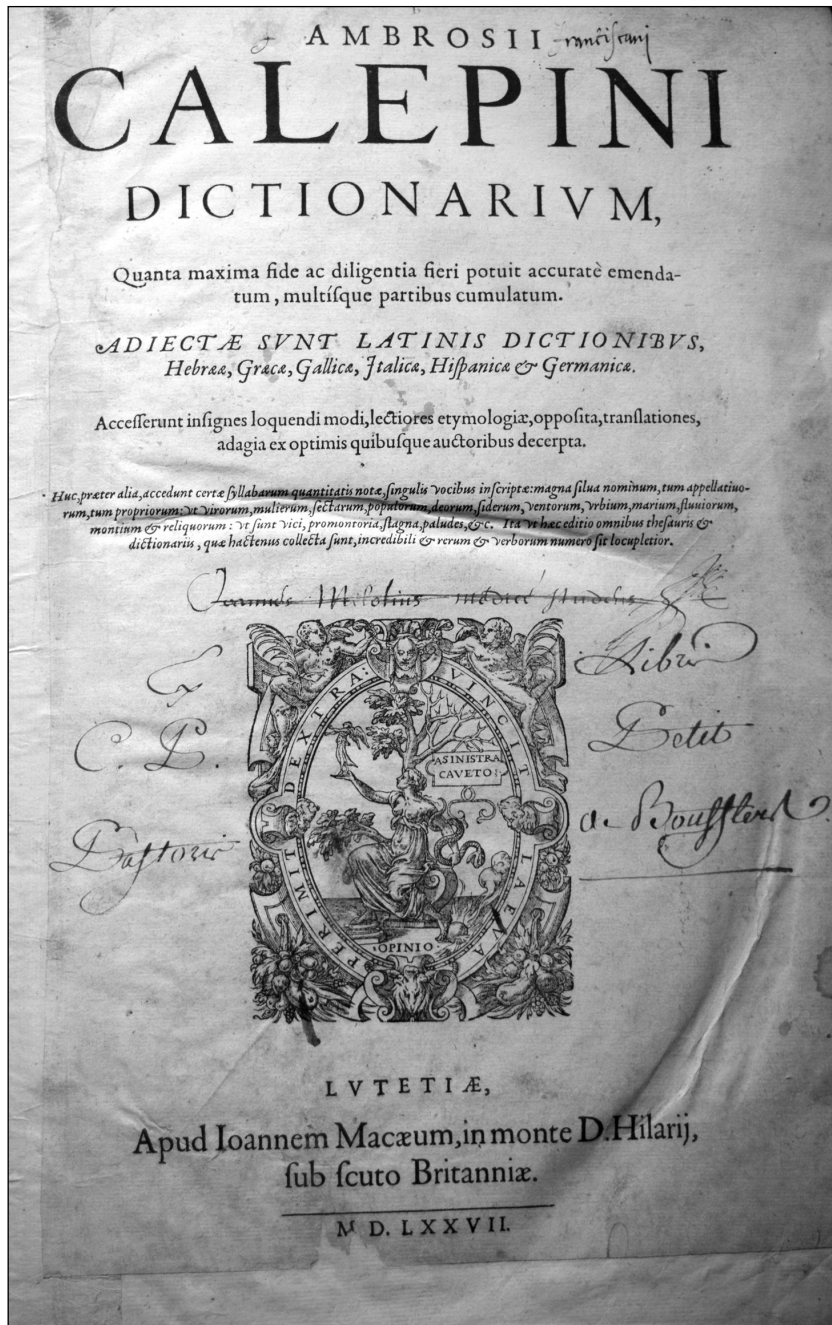 AMBROSII franciscani
CALEPINI
DICTIONARIVM,
Quanta maxima fide ac diligentia fieri potuit accuratè emenda-
tum, multíſque partibus cumulatum.
ADIECTÆ SVNT LATINIS DICTIONIBVS,
Hebrææ, Græcæ, Gallicæ, Italicæ, Hiſpanicæ & Germanicæ.
Acceſſerunt inſignes loquendi modi, lectiores etymologiæ, oppoſita, tranſlationes,
adagia ex optimis quibuſque auctoribus decerpta.
Huc, præter alia, accedunt certæ ſyllabarum quantitatis notæ, ſingulis vocibus inſcriptæ: magna ſilua nominum, tum appellatiuo-
rum, tum propriorum: vt virorum, mulierum, ſectarum, populorum, deorum, ſiderum, ventorum, vrbium, marium, fluuiorum,
montium & reliquorum: vt ſunt vici, promontoria, ſtagna, paludes, &c. Ita vt hæc editio omnibus theſauris &
dictionariis, quæ hactenus collecta ſunt, incredibili & rerum & verborum numero ſit locupletior.
Ioannes
Ex Libris
C. P. Petit
Paſtoris de Boufflers
PERIMIT DEXTRA: VINCIT LAEVA
A SINISTRA
CAVETO:
OPINIO
LVTETIÆ,
Apud Ioannem Macæum, in monte D. Hilarij,
ſub ſcuto Britanniæ.
M D. LXXVII.